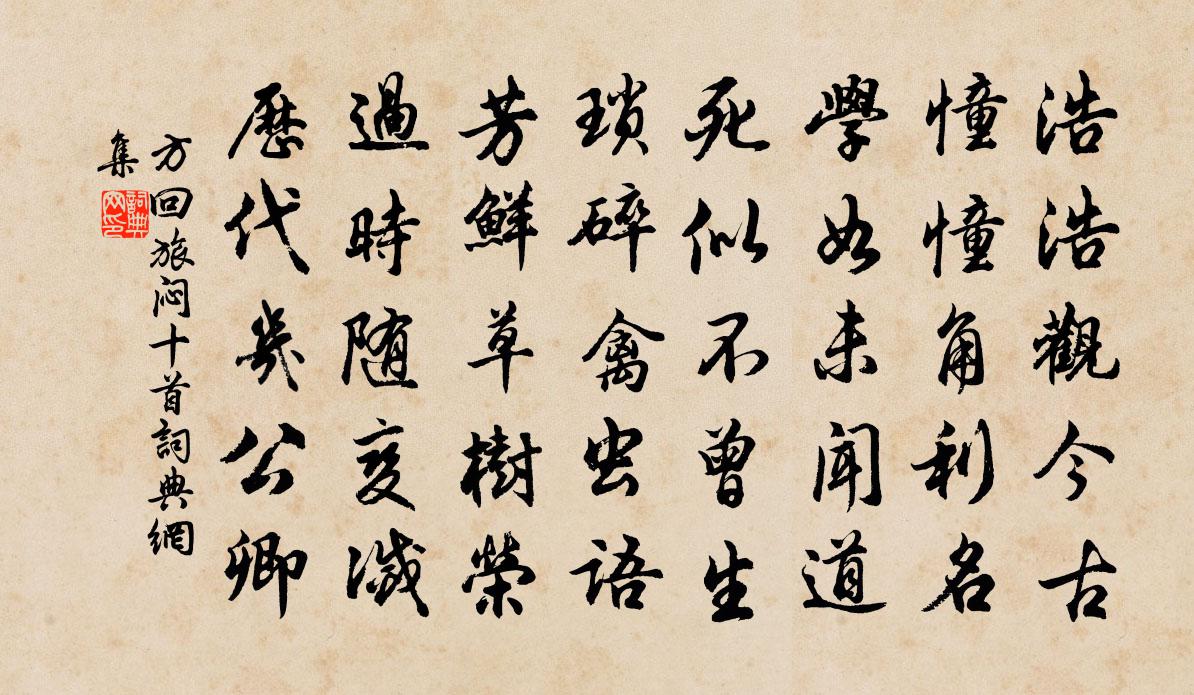 浩浩觀今古
憧憧角利名
學如未聞道
死似不曾生
瑣碎禽虫语
芳鮮草樹榮
過時随变滅
歷代幾公卿
方回旅闷十首詞典網
集
詞典
网印